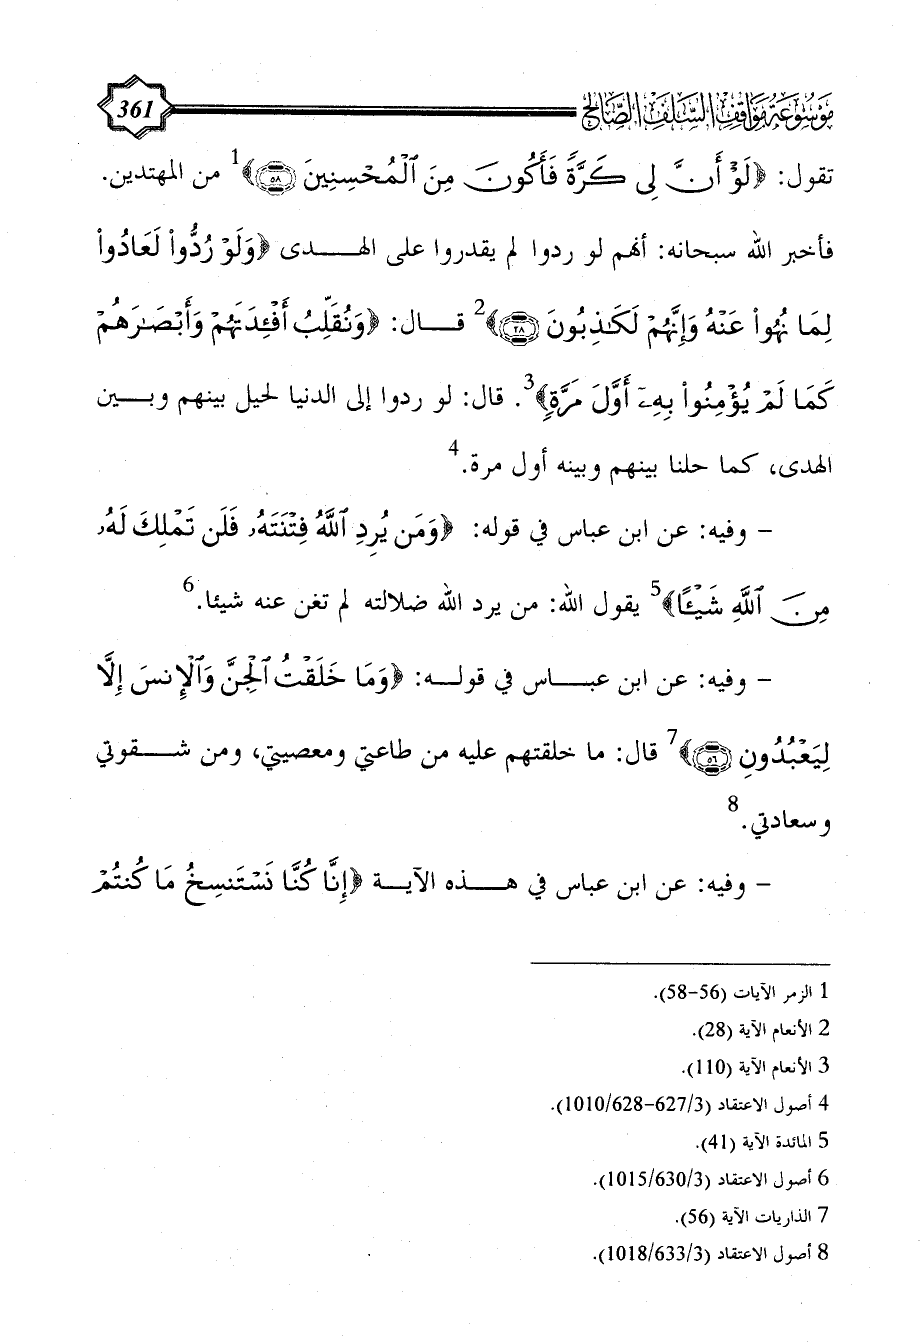 موسوعة مواقف السلف الصالح
361
تقول: ﴿لَوْ أَنَّ لِي كَرَّةً فَأَكُونَ مِنَ ٱلْمُحْسِنِينَ ٥٨﴾1 من المهتدين.
فأخبر الله سبحانه: أنهم لو ردوا لم يقدروا على الهدى ﴿وَلَوْ رُدُّواْ لَعَادُواْ
لِمَا نُهُواْ عَنْهُ وَإِنَّهُمْ لَكَٰذِبُونَ ٢٨﴾2 قال: ﴿وَنُقَلِّبُ أَفْـِٔدَتَهُمْ وَأَبْصَٰرَهُمْ
كَمَا لَمْ يُؤْمِنُواْ بِهِۦٓ أَوَّلَ مَرَّةٍ﴾3. قال: لو ردوا إلى الدنيا لحيل بينهم وبين
الهدى، كما حلنا بينهم وبينه أول مرة.4
– وفيه: عن ابن عباس في قوله: ﴿وَمَن يُرِدِ ٱللَّهُ فِتْنَتَهُۥ فَلَن تَمْلِكَ لَهُۥ
مِنَ ٱللَّهِ شَيْـًٔا﴾5 يقول الله: من يرد الله ضلالته لم تغن عنه شيئا.6
– وفيه: عن ابن عباس في قوله: ﴿وَمَا خَلَقْتُ ٱلْجِنَّ وَٱلْإِنسَ إِلَّا
لِيَعْبُدُونِ ٥٦﴾7 قال: ما خلقتهم عليه من طاعتي ومعصيتي، ومن شقوتي
وسعادتي.8
– وفيه: عن ابن عباس في هذه الآية ﴿إِنَّا كُنَّا نَسْتَنسِخُ مَا كُنتُمْ
1 الزمر الآيات (56-58).
2 الأنعام الآية (28).
3 الأنعام الآية (110).
4 أصول الاعتقاد (3/627-628/1010).
5 المائدة الآية (41).
6 أصول الاعتقاد (3/630/1015).
7 الذاريات الآية (56).
8 أصول الاعتقاد (3/633/1018).